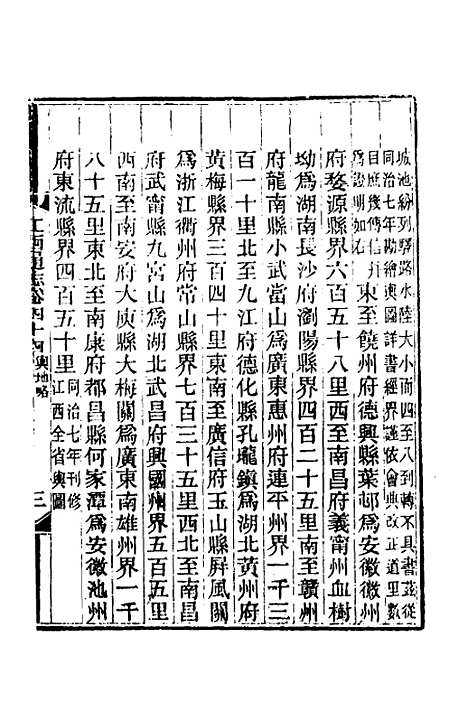 城池紛列驛路水陸大小而四至八到轉不具書茲從
同治七年勘繪輿圖詳書經界謹依會典改正道里數
目庶幾傳信升
為證明如右
東至饒州府德興縣葉邨為安徽徽州
府婺源縣界六百五十八里西至南昌府義甯州血樹
坳為湖南長沙府瀏陽縣界四百二十五里南至贛州
府龍南縣小武當山為廣東惠州府連平州界一千三
百一十里北至九江府德化縣孔壠鎮為湖北黃州府
黃梅縣界三百四十里東南至廣信府玉山縣屏風關
為浙江衢州府常山縣界七百三十五里西北至南昌
府武甯縣九宮山為湖北武昌府興國州界五百五里
西南至南安府大庾縣大梅關為廣東南雄州界一千
八十五里東北至南康府都昌縣何家潭為安徽池州
府東流縣界四百五十里
同治七年刊修
江西全省輿圖
江西通志卷四十四
輿地略
三